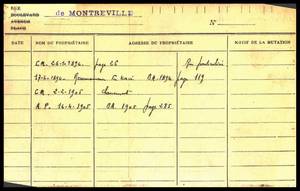 RUE
BOULEVARD
AVENUE
PLACE
de MONTREVILLE
N°
DATE
NOM DU PROPRIÉTAIRE
ADRESSE DU PROPRIÉTAIRE
MOTIF DE LA MUTATION
CM. 26-2-1892. page 26
27-2-1892. C. Mari CM. 1892 page 119
CM. 2-2-1905 classement
A.P. 14-4-1905 CM. 1905 page 285